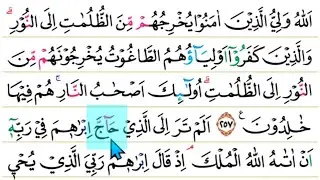 اَللّٰهُ وَلِيُّ الَّذِيْنَ اٰمَنُوْا يُخْرِجُهُمْ مِّنَ الظُّلُمٰتِ اِلَى النُّوْرِ ۗ
وَالَّذِيْنَ كَفَرُوْٓا اَوْلِيَاۤؤُهُمُ الطَّاغُوْتُ يُخْرِجُوْنَهُمْ مِّنَ
النُّوْرِ اِلَى الظُّلُمٰتِ ۗ اُولٰۤىِٕكَ اَصْحٰبُ النَّارِ ۚ هُمْ فِيْهَا
خٰلِدُوْنَ ࣖ ٢٥٧ اَلَمْ تَرَ اِلَى الَّذِيْ حَاۤجَّ اِبْرٰهٖمَ فِيْ رَبِّهٖٓ
اَنْ اٰتٰىهُ اللّٰهُ الْمُلْكَ ۘ اِذْ قَالَ اِبْرٰهٖمُ رَبِّيَ الَّذِيْ يُحْيٖ